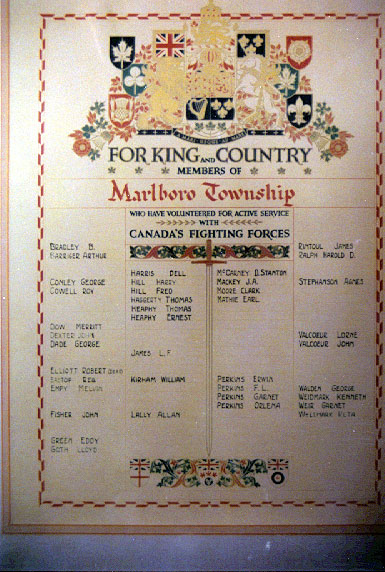 A MARI USQUE AD MARE
FOR KING AND COUNTRY
MEMBERS OF
Marlboro Township
WHO HAVE VOLUNTEERED FOR ACTIVE SERVICE
WITH
CANADA'S FIGHTING FORCES
BRADLEY B.
BARRIGER ARTHUR
CONLEY GEORGE
COWELL ROY
DOW MERRITT
DEXTER JOHN
DADE GEORGE
ELLIOTT ROBERT
REG
EMPY
FISHER JOHN
GREEN EDDY
GOTH LLOYD
HARRIS DELL
HILL HARRY
HILL FRED
HAGGERTY THOMAS
HEAPHY THOMAS
HEAPHY ERNEST
JAMES L.F
KIRHAM WILLIAM
LALLY ALLAN
McCARNEY D.STANTON
MACKEY J.A.
MOORE CLARK
MATHIE EARL
PERKINS ERWIN
PERKINS F.L.
PERKINS GARNET
PERKINS ORLEMA
RIMTOUL JAMES
RALPH HAROLD D.
STEPHANSON AGNES
VALCOEUR LORNE
VALCOEUR JOHN
WALDEN GEORGE
WEIDMARK KENNETH
WEIR GARNET
WEIDMARK VETA